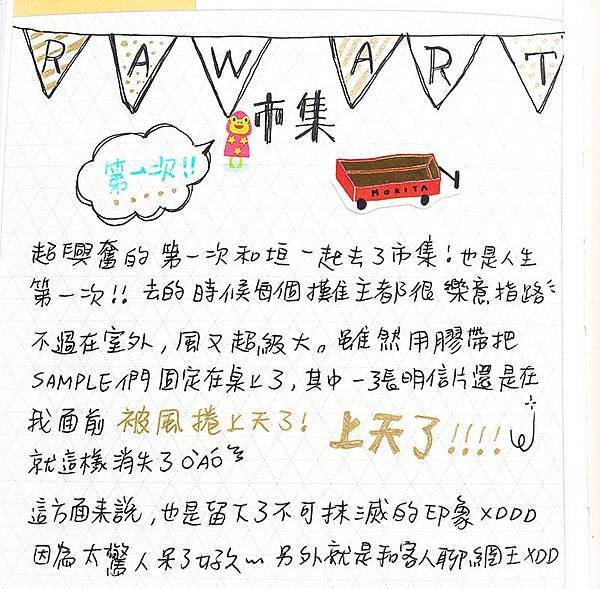 RAW ART
市集
第一次!!
MORITA
超興奮的第一次和垣一起去了市集!也是人生
第一次!! 去的時候每個攤主都很樂意指路
不過在室外,風又超級大。雖然用膠帶把
SAMPLE們固定在桌上了,其中一張明信片還是在
我面前 被風捲上天了! 上天了!!!!
就這樣消失了
這方面來說,也是留下了不可抹滅的印象XDDD
因為太驚人呆了好久~ 另外就是和客人聊網王XDD